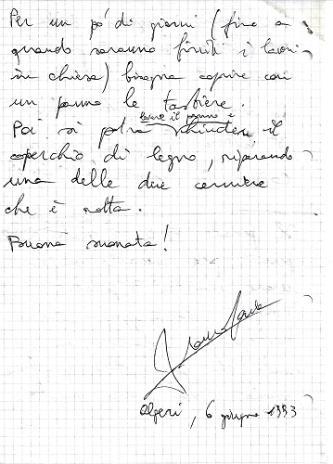 Per un pó di giorni (fino a
quando saranno finiti i lavori
in chiesa) bisogna coprire con
un panno le tastiere.
Poi si potrà levare il panno e chiudere il
coperchio di legno, riparando
una delle due cerniere
che è rotta.
Buona suonata!
Algeri, 6 giugno 1993